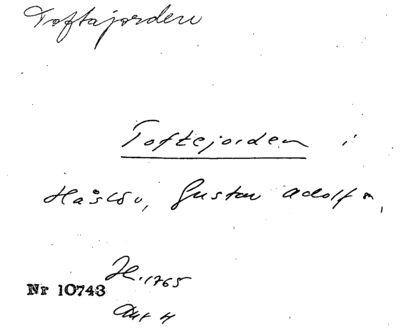 Toftajorden
Toftejorden i
Håslöv, Gustav Adolf s,
H. 1765
Nr 10743
Akt 4